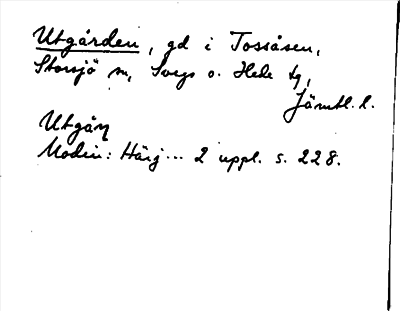 Utgården, gd i Tossåsen,
Storsjö sn, Svegs o. Hede tg,
Jämtl. l.
Utgåŋ
Modin: Härj... 2 uppl. s. 228.